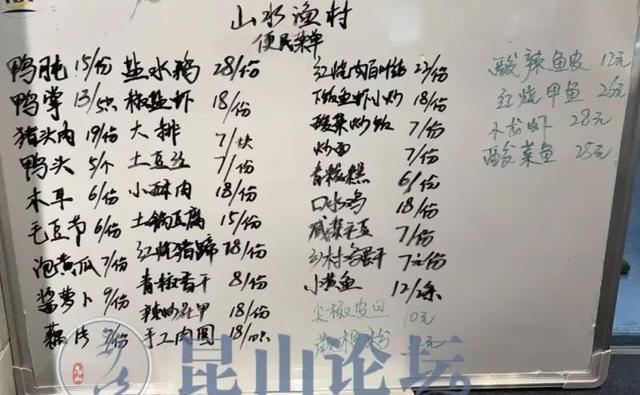 山水渔村
便民菜单
鸭肫 15/份
鸭掌 13/
猪头肉 19/份
鸭头 5/个
木耳 6/份
毛豆节 6/份
泡黄瓜 7/份
酱萝卜 9/份
藕片 /份
盐水鹅 28/份
椒盐虾 18/份
大排 7/块
土豆丝 7/份
小酥肉 18/份
土锅豆腐 15/份
红烧猪蹄 28/份
青椒香干 8/份
辣炒花甲 18/份
手工肉圆 18/
红烧肉百叶结 22/份
下饭鱼虾小炒 18/份
酸菜炒饭 7/份
炒面 7/份
口水鸡 18/份
咸菜毛豆 7/份
乡村 7元/份
小黄鱼 12/条
尖椒皮旦 10元
酸辣鱼皮 12元
红烧甲鱼 26元
小龙虾 28元
酸菜鱼 25元
昆山论坛